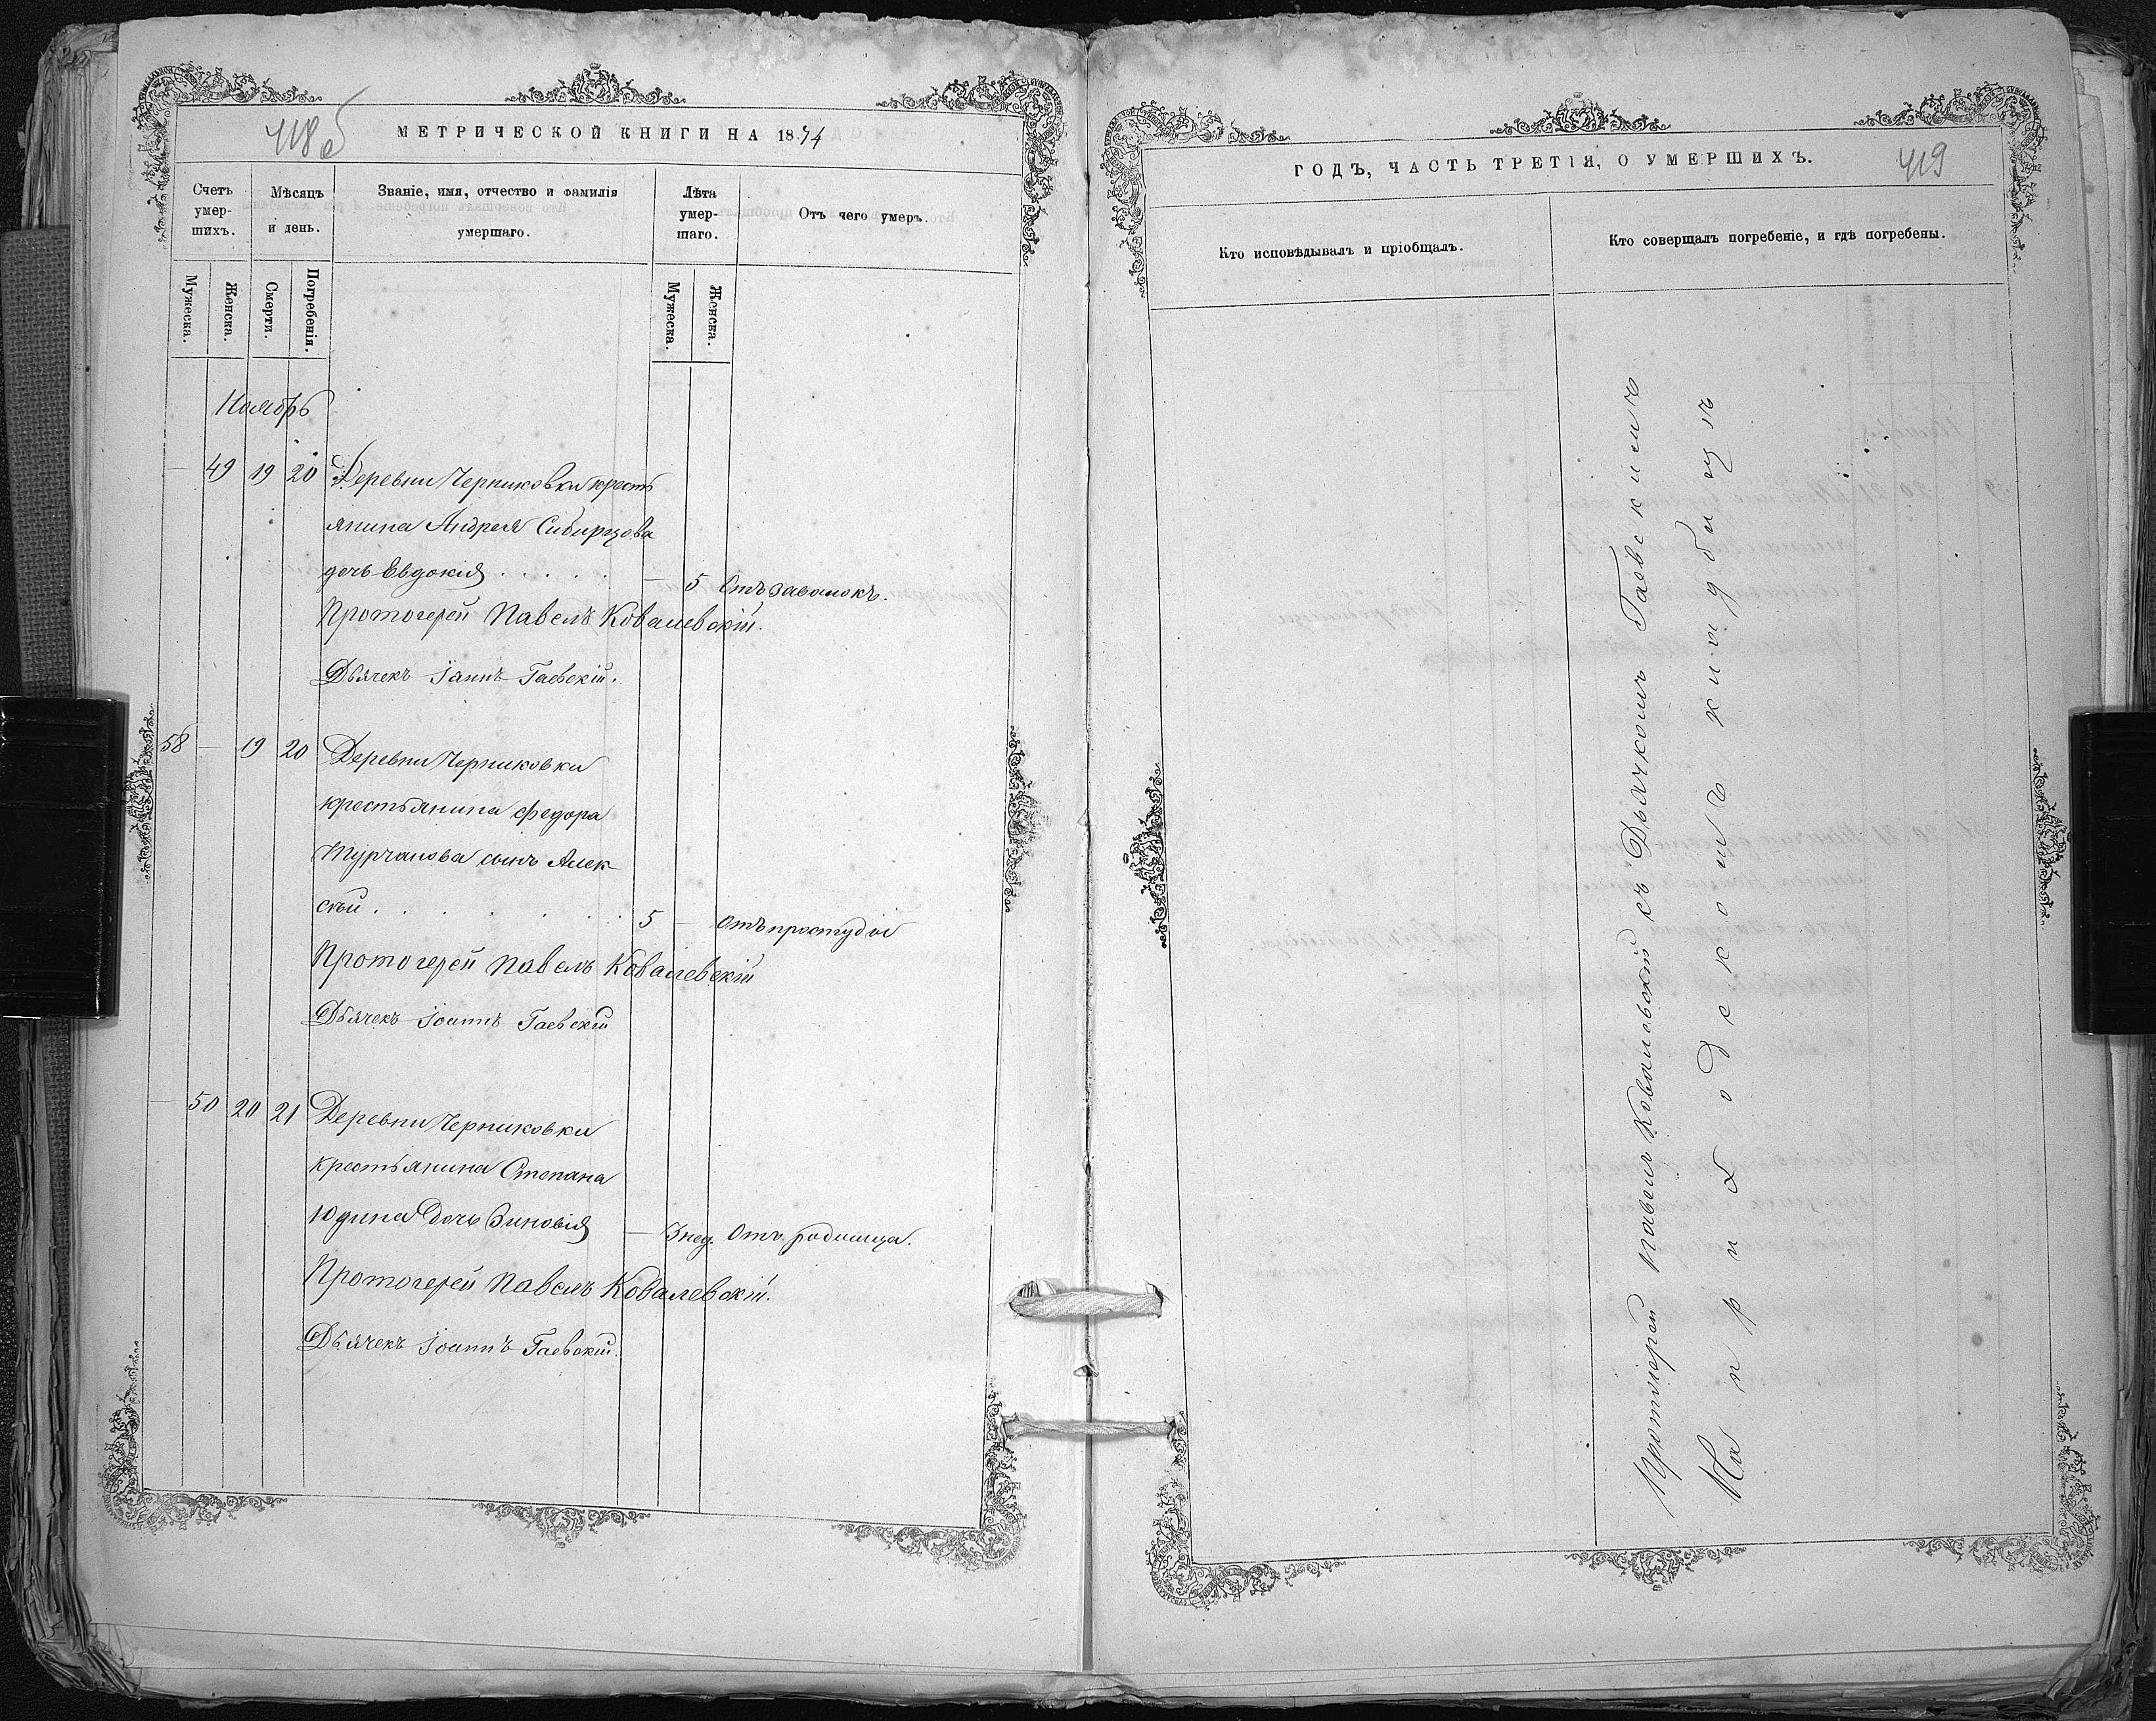 418 об
МЕТРИЧЕСКОЙ КНИГИ НА 1874
Счетъ умер-шихъ.
Мѣсяцъ и день.
Званіе, имя, отчество и фамилія умершаго.
Лѣта умер-шаго.
Отъ чего умеръ.
Мужеска.
Женска.
Смерти.
Погребенія.
Мужеска.
Женска.
Ноябрь
— 49 19 20 Деревни Черниковки кресть
янина Андрея Сибирцова
дочь Евдокія . . . . . — 5 Отъ заволокъ.
Протоіерей Павелъ Ковалевскій.
Дьячекъ Іаннъ Гаевскій.
58 — 19 20 Деревни Черниковки
крестьянина Федора
Турчанова сынъ Алек-
сѣй . . . . . . . 5 — Отъ простуды
Протоіерей Павелъ Ковалевскій
Дьячекъ Іоаннъ Гаевскій
— 50 20 21 Деревни Черниковки
крестьянина Степана
Юдина Дочь Зиновія — 3 нед. Отъ родимца.
Протоіерей Павелъ Ковалевскій.
Дьячекъ Іоаннъ Гаевскій.
419
ГОДЪ, ЧАСТЬ ТРЕТІЯ, О УМЕРШИХЪ.
Кто исповѣдывалъ и пріобщалъ.
Кто совершалъ погребеніе, и гдѣ погребены.
Протоіерей Павелъ Ковалевскій съ Дьячкомъ Гаевскимъ
На приходскомъ кладбищѣ